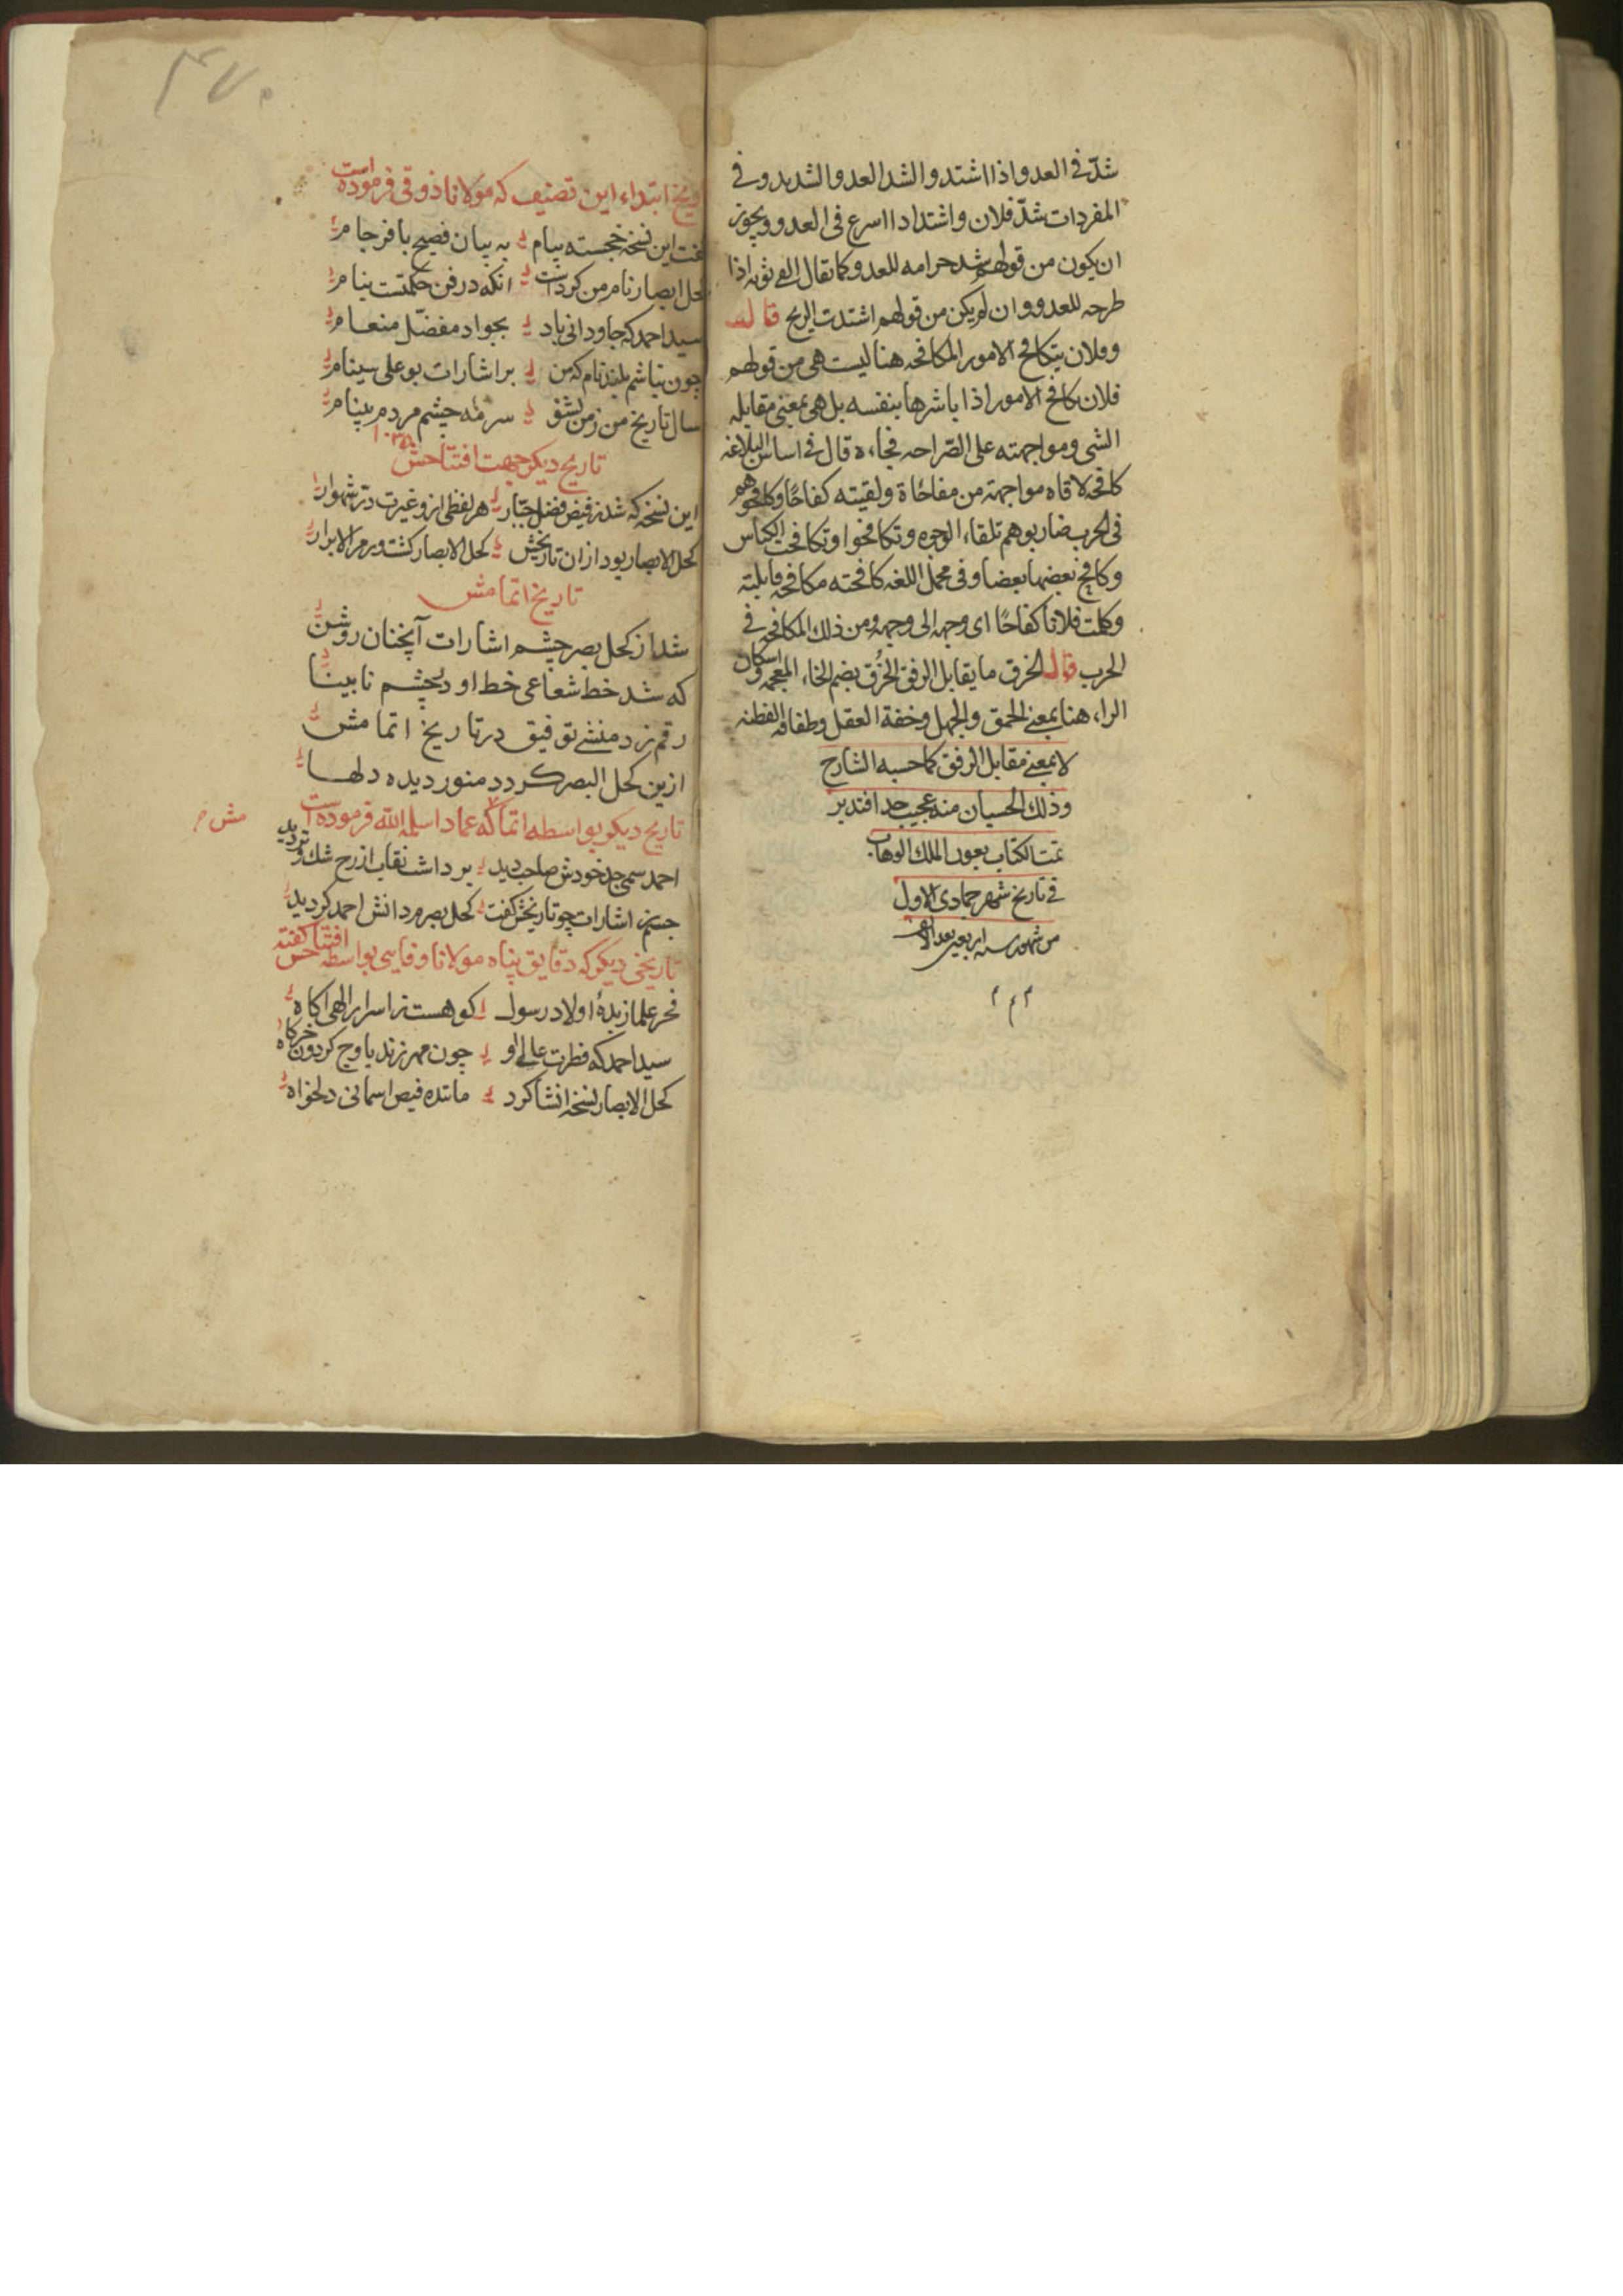 شدّ فی العدو اذا اشتد والشد العدو الشدید وفی
المفردات شدّ فلان واشتد اذا اسرع فی العدو ویجوز
ان یکون من قولهم شد حرامه للعدو کما یقال القی ثوبه اذا
طرحه للعدو وان لم یکن من قولهم اشتدت الریح قال
وفلان یتکافح الامور المکافحه هنا لیست هی من قولهم
فلان یکافح الامور اذا باشرها بنفسه بل هی بمعنی مقابله
الشی ومواجهته علی الصّراحه فجاءه قال فی اساس البلاغه
کافحه لاقاه مواجهة من مفاجاة ولقیته کفاحًا وکافحوهم
فی الحرب ضاربوهم تلقاء الوجوه وتکافحوا وتکافحت الکباش
وکافح بعضها بعضا وفی مجمل اللغه کافحته مکافحه قابلته
وکلمت فلاناً کفاحًا ای وجهه الی وجهه ومن ذلک المکافحه فی
الحرب قال الخرق ما یقابل الرفق الخُرق بضم الخاء المعجمه واسکان
الراء هنا بمعنی الحمق والجهل وخفة العقل وطفافه الفطنه
لا بمعنی مقابل الرفق کما حسبه الشارح
وذلک الحسبان منه عجیب جدا فتدبر
تمت الکتاب بعون الملک الوهاب
فی تاریخ شهر جمادی الاول
من شهور سنه اربعین بعد الالف
م م م
۴۷۰
تاریخ ابتداء این تصنیف که مولانا ذوقی فرموده است
گفت این نسخه خجسته پیام به بیان فصیح بافرجام
کحل ابصار نام من کردست انکه در فن حکمتست بنام
سید احمد که جاودانی باد بجواد مفضّل منعام
چون نباشم بلند نام که من بر اشارات بوعلی سینام
سال تاریخ من زمن بشنو سرمه چشم مردم بینام
تاریخ دیکر جهت افتتاحش
این نسخه که شد ز فیض فضل جبّار هر لفظی ازو غیرت درّ شهوار
کحل الابصار بود ازان تاریخش کحل الابصار کشت و رمز الابرار
تاریخ اتمامش
شد از کحل بصر چشم اشارات آنچنان روشن
که شد خط شعاعی خط او در چشم نابینا
رقم زد منشی توفیق در تاریخ اتمامش
ازین کحل البصر کردد منور دیده دلها
تاریخ دیکر بواسطه اتمامش که عماد اسلمه الله فرموده است
احمد سمی جد خودش صاحب دید برداشت نقاب از رخ شک و تردید
چشم اشارات چو تاریخش کفت کحل بصر مردانش احمد کردید
تاریخی دیکر که دقایق پناه مولانا وفایی بواسطه افتتاحش کفته
فخر علما زبدهٔ اولاد رسول کو هست ز اسرار الهی اکاه
سید احمد که فطرت عالی او چون مهر زند باوج کردون خرکاه
کحل الابصار نسخه انشا کرد مانده فیض اسمانی دلخواه